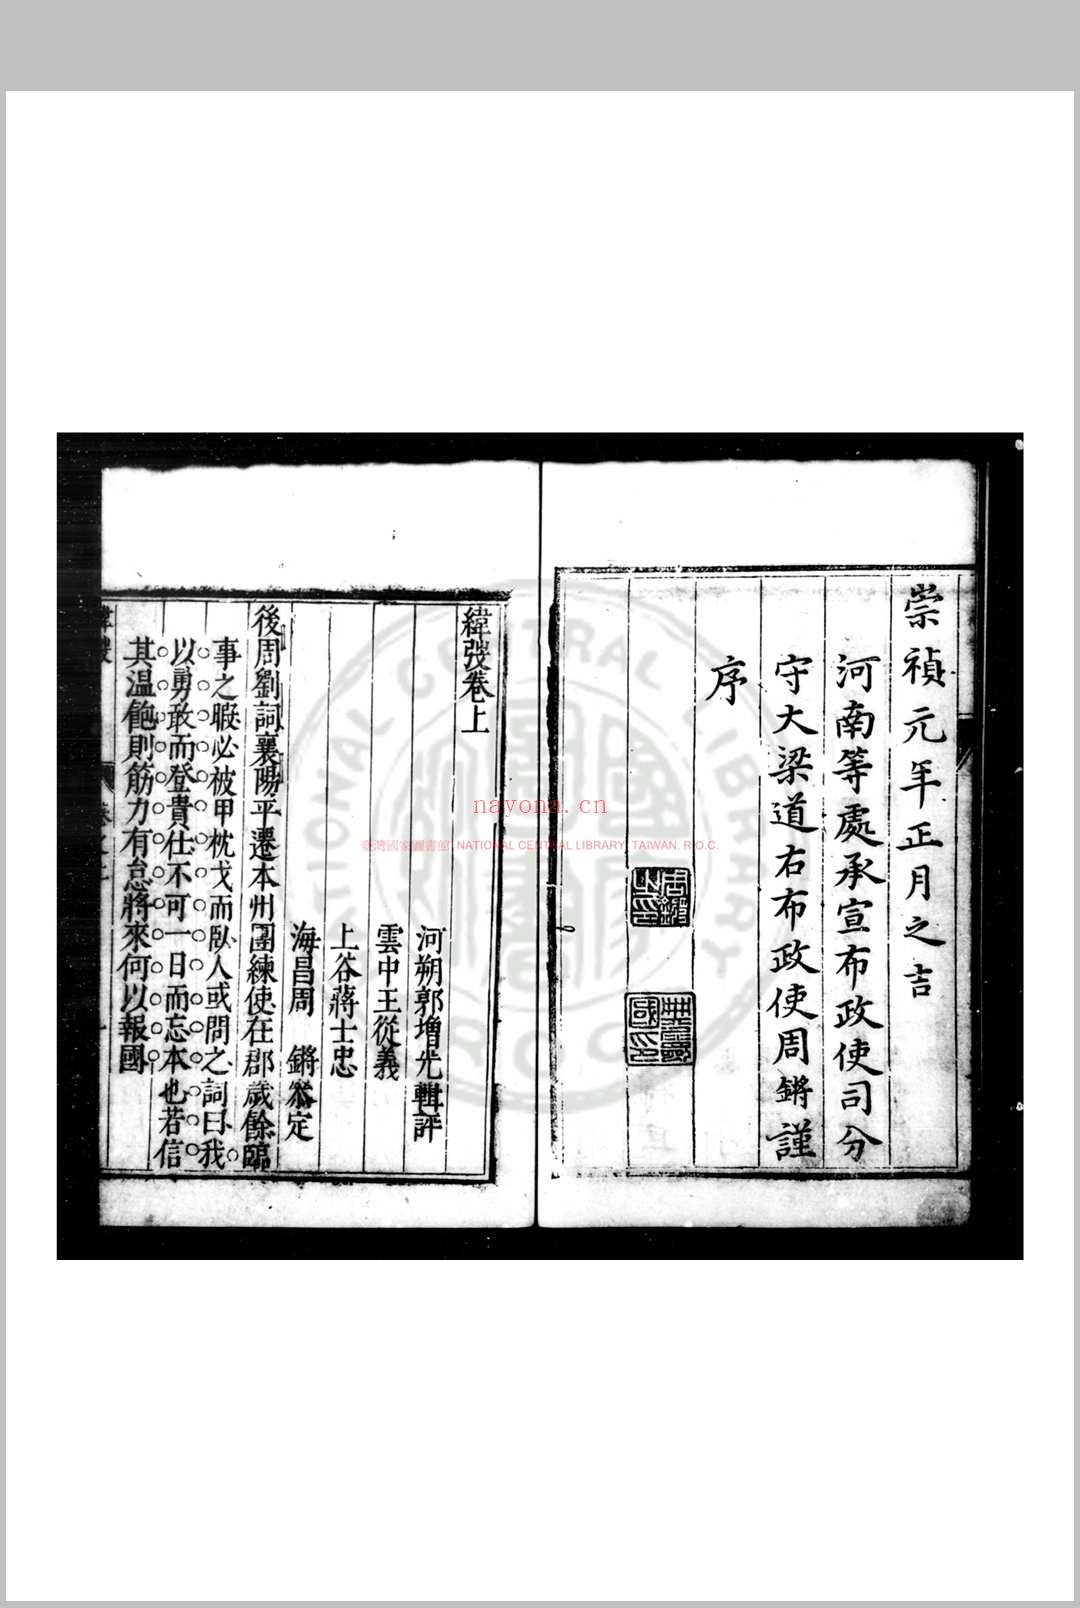 崇禎元年正月之吉
河南等處承宣布政使司分
守大梁道右布政使周鏘謹
序
緯弢卷上
河朔郭增光輯評
雲中王從義
上谷蔣士忠
海昌周 鏘叅定
後周劉詞襄陽平遷本州團練使在郡歲餘臨
事之暇必被甲枕戈而臥人或問之詞曰我
以勇敢而登貴仕不可一日而忘本也若信
其溫飽則筋力有怠將來何以報國
nayona.cn
臺灣國家圖書館 NATIONAL CENTRAL LIBRARY, TAIWAN, R.O.C.
NATIONAL CENTRAL LIBRARY
ROC